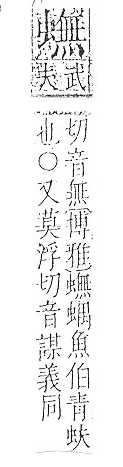 蟱
武夫
切音無博雅蟱蜵魚伯青蚨
也○又莫浮切音謀義同